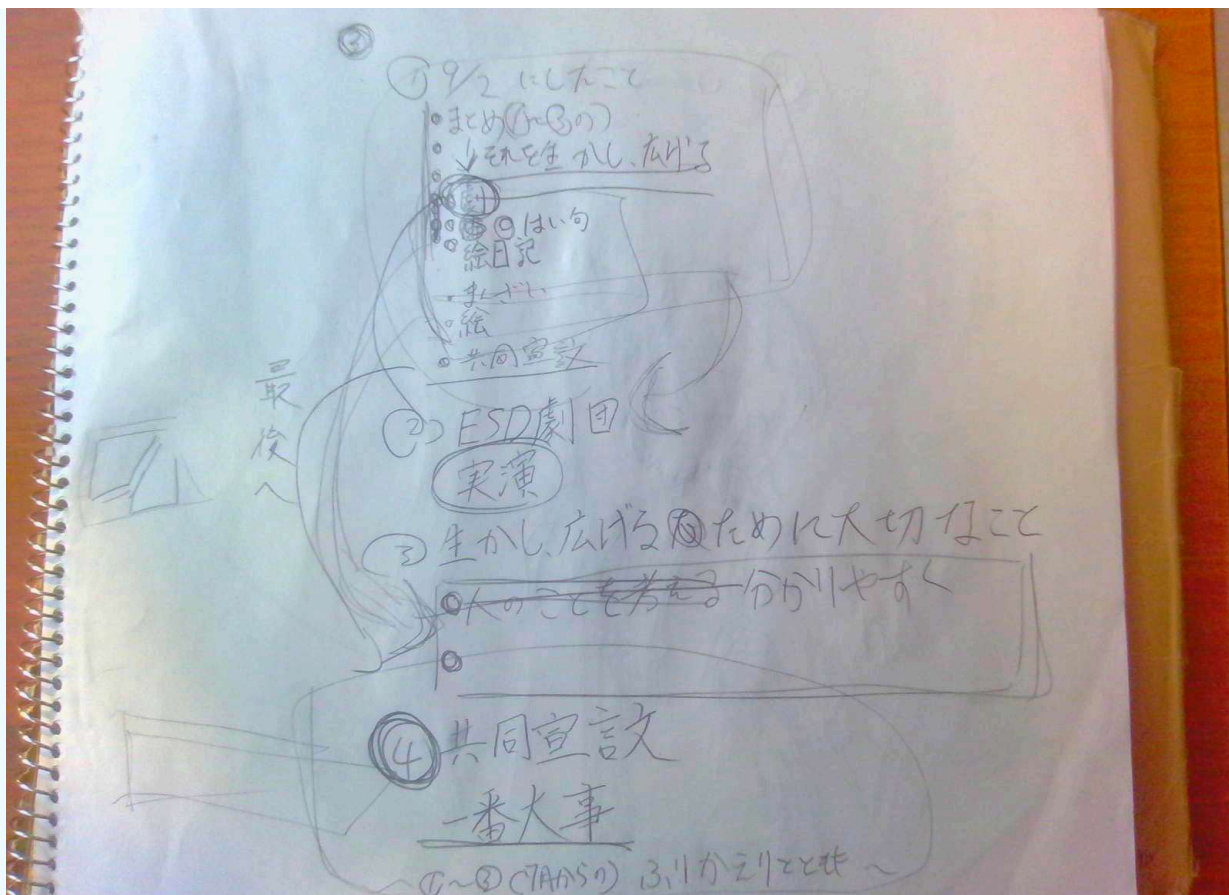 ① 9/2 にしたこと
・まとめ(①~③の)
↓それを生かし、広げる
劇
はい句
絵日記
・まんざい
・絵
・共同宣言文
最後へ
② ESD劇団
実演
③ 生かし、広げるために大切なこと
・人のことを考える 分かりやすく
④ 共同宣言文
一番大事
~①~③(7Aからの) ふりかえりととも~